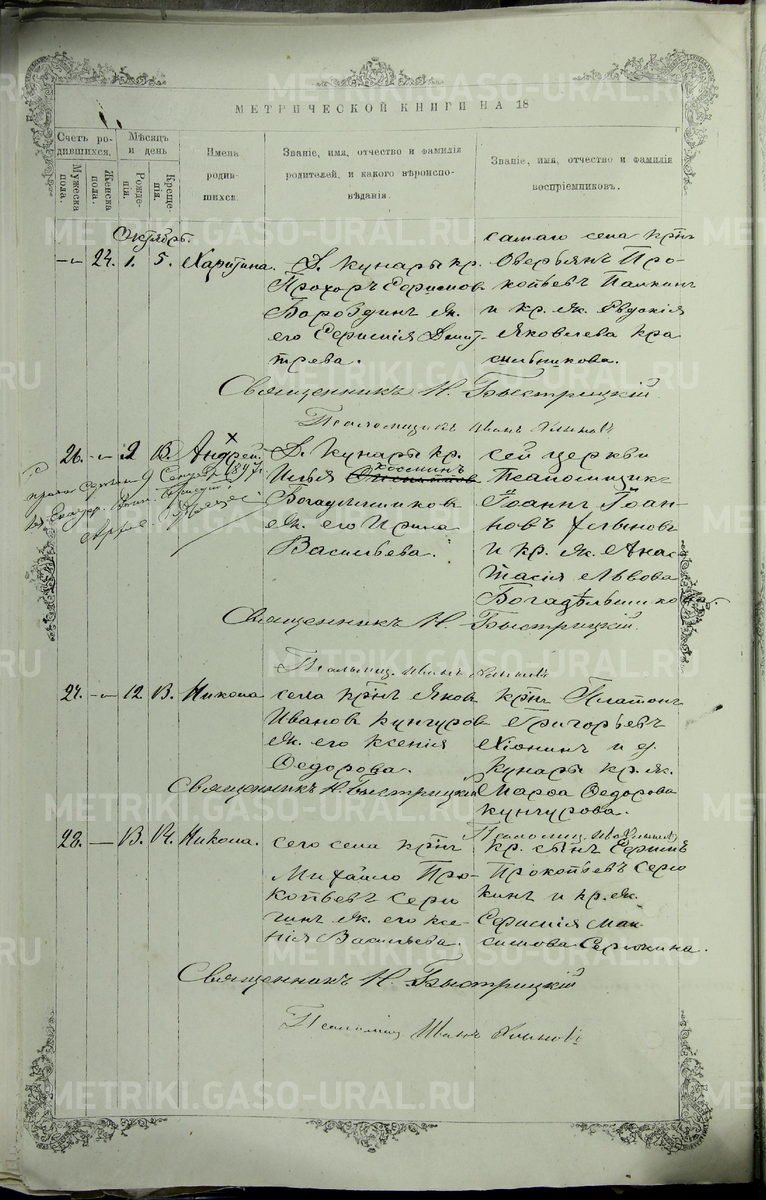 МЕТРИЧЕСКОЙ КНИГИ НА 18
Счетъ ро-
дившихся.
Мужеска
пола.
Женска
пола.
Мѣсяцъ
и день
Рожде-
нія.
Креще-
нія.
Имена
родив-
шихся.
Званіе, имя, отчество и фамилія
родителей, и какого вѣроиспо-
вѣданія.
Званіе, имя, отчество и фамилія
воспріемниковъ.
Октябрь.
24. 1. 5. Харитина.
Д. Кунары кр.
Прохоръ Ефимов
Бороздинъ ж.
его Ефимія Дмит-
рева.
самаго села крн
Оверьянъ Про-
копьевъ Палкинъ
и кр. ж. Евдокія
Яковлева Кра
сильникова.
Священникъ Н. Быстрицкій.
Псаломщикъ Иванъ
26. 2 13. Андрей.
Д. Кунары кр.
Илья Космин
Богадѣльщиковъ
ж. его Ирина
Васильева.
сей церкви
Псаломщикъ
Іоаннъ Іоан-
новъ
и кр. ж. Анас
тасія Львова
Богадѣльщиков
Священникъ Н. Быстрицкій.
Псаломщ. Иванъ
27. 12. 13. Никола.
села крнъ Яков
Иванов Кунгуров
ж. его Ксенія
Федорова.
крнъ Платонъ
Григорьевъ
Хіонинъ и д.
Кунары кр. ж.
Марѳа Федорова
Кунгурова.
Священникъ Н. Быстрицкій
Псаломщ.
28. 13. 14. Никола.
сего села крнъ
Михайло Про-
копьевъ Серю
гинъ ж. его Ксе-
нія Васильева.
кр. сынъ Ефимъ
Прокопьевъ Серю
кинъ и кр. ж.
Ефимія Мак
симова Серюкина.
Священникъ Н. Быстрицкій
Псаломщ Иванъ
METRIKI.GASO-URAL.RU